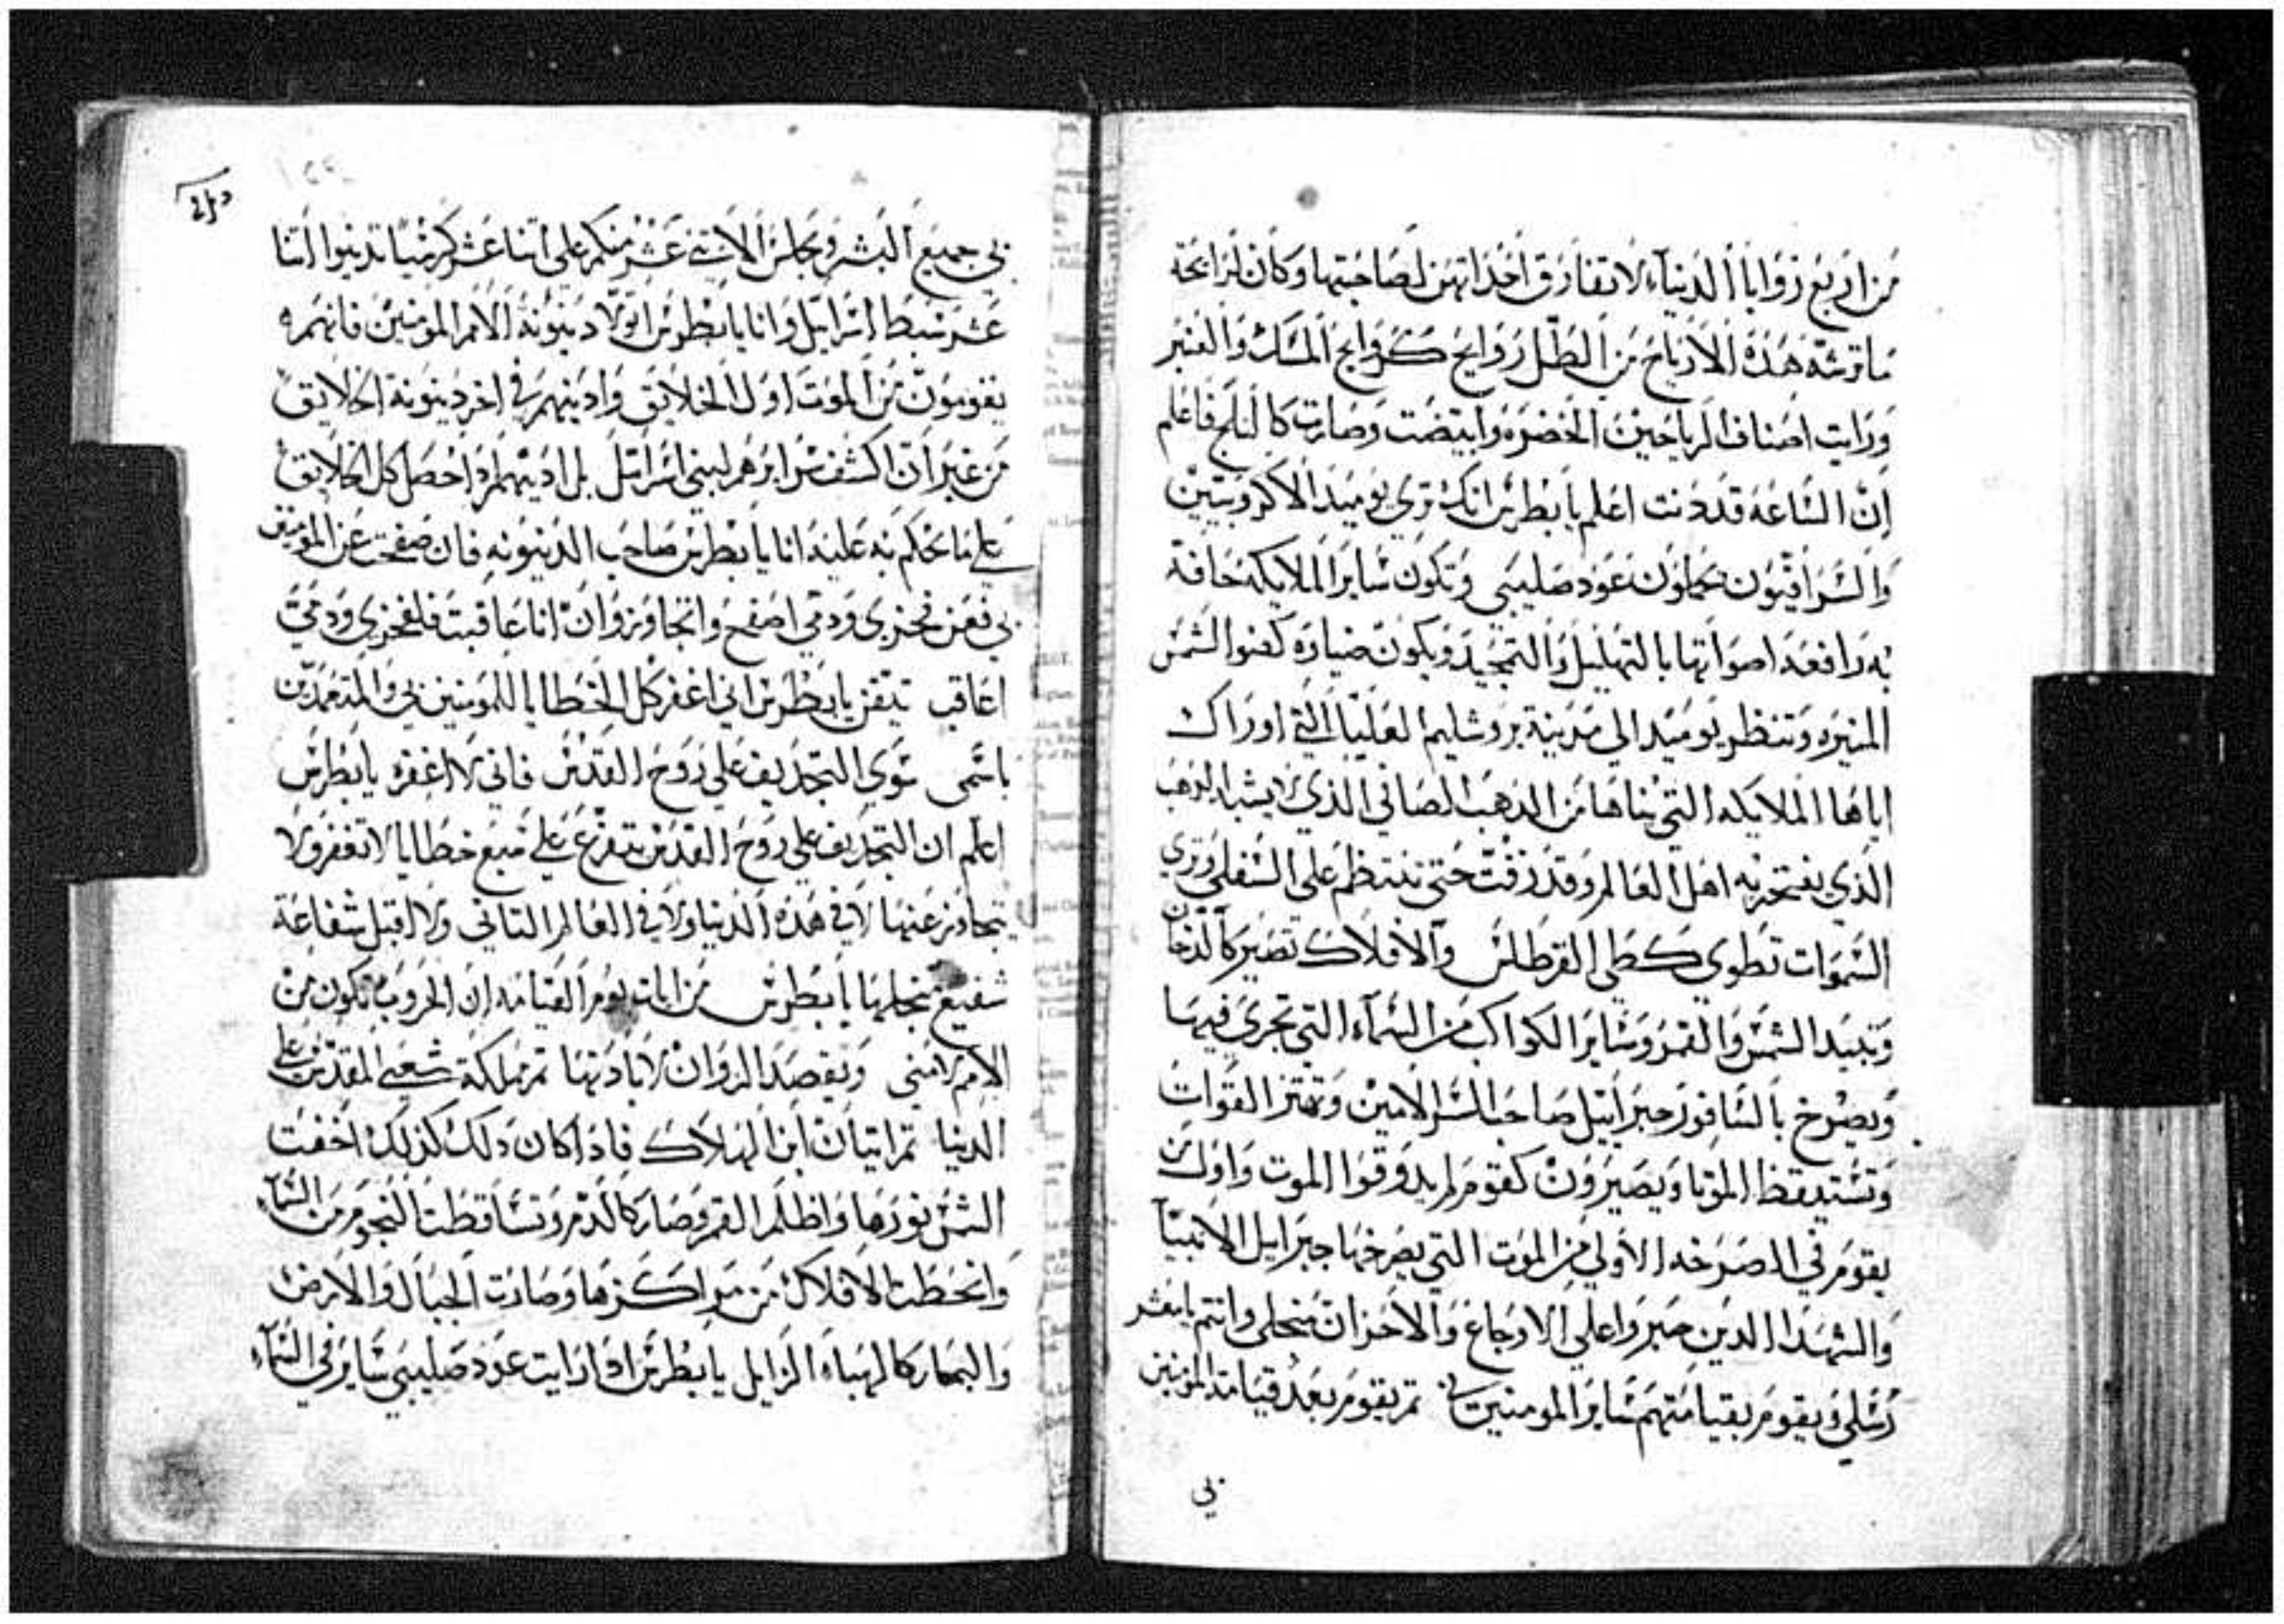 من اربع زوايا الدنياء لا تفارق احداتهن لصاحبتها وكان لرايحة
ما ترشه هذه الارياح من الطل روايح كروايح المسك والعنبر
ورايت اصناف الرياحين الخضره وابيضت وصارت كالثلج فاعلم
ان الساعه قد دنت اعلم يا بطرس انك تري يوميد الاكروبيين
والسرافيون يحملون عود صليبي وتكون ساير الملايكه حافة
به رافعه اصواتها بالتهليل والتمجيد ويكون ضياوه كضوا الشمس
المنيره وتنظر يوميد الي مدينة يروشليم العليا التي اوراك
اياها الملايكه التي بناها من الدهب الصافي الذي لا يشبه الدهب
الذي يفتخر به اهل العالم وقد زفت حتي تنتظم علي السفلي وتري
السموات تطوي كطي القرطاس والافلاك تصير كالدخان
وتبيد الشمس والقمر وساير الكواكب من السماء التي تجري فيها
ويصرخ بالسافور جبراييل صاحب السر الامين وتهتز القوات
وتستيقظ الموتا ويصيرون كقوم لم يدوقوا الموت واول من
يقوم في الصرخه الاولي من الموت التي يصرخها جبرايل الانبيا
والشهدا الدين صبروا علي الاوجاع والاحزان منجلي وانتم يا معشر
رسلي ويقوم بقيامتهم ساير المومنين بي تم يقوم بعد قيامة المومنين
بي
بي جميع البشر وتجلس الاتني عشر منكم علي اتنا عشر كرسيا تدينوا اتنا
عشر سبط اسراييل وانا يا بطرس اتولا دينونة الامم المومنين فانهم
يقومون من الموت اول الخلايق وادينهم في اخر دينونة الخلايق
من غير ان اكشف سرايرهم لبني اسراييل بل ادينهم اذا حصل كل الخلايق
علي ما يحكم به عليه انا يا بطرس صاحب الدينونه فان صفحت عن المومنين
بي فعن لحمي ودمي اصفح واتجاوز وان انا عاقبت فلحمي ودمي
اعاقب تيقن يا بطرس اني اغفر كل الخطايا للمومنين بي والمتعمدين
باسمي سوي التجديف علي روح القدس فاني لا اغفره يا بطرس
اعلم ان التجديف علي روح القدس يتفرع علي سبع خطايا لا تغفر ولا
يتجاوز عنها لا في هده الدنيا ولا في العالم التاني ولا اقبل شفاعة
شفيع منجلها يا بطرس من ايات يوم القيامه ان الحروب تكون من
الامم لامتي ويقصد الزوان لابادتها تم مملكة شعبي المقدس علي
الدنيا تم اتيان ابن الهلاك فاذا كان دلك كذلك اخفت
الشمس نورها واظلم القمر وصار كالدم وتساقطت النجوم من السماء
وانحطت الافلاك من مراكزها وصارت الجبال والارض
والبحار كالهباء الزايل يا بطرس ادا رايت عود صليبي ساير في السماء